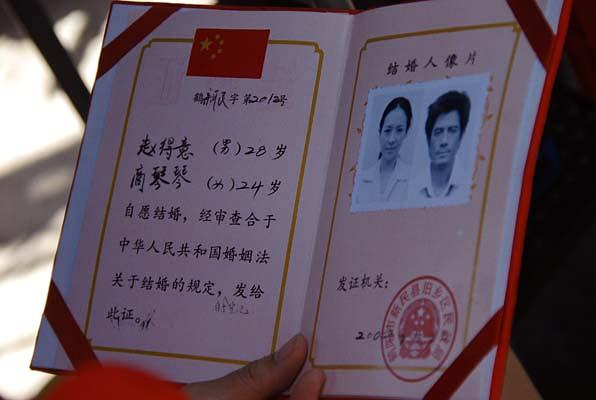 鹤新民字第2012号
赵得意 (男)28岁
商琴琴 (女)24岁
自愿结婚，经审查合于
中华人民共和国婚姻法
关于结婚的规定，发给
此证。
结婚人像片
发证机关：